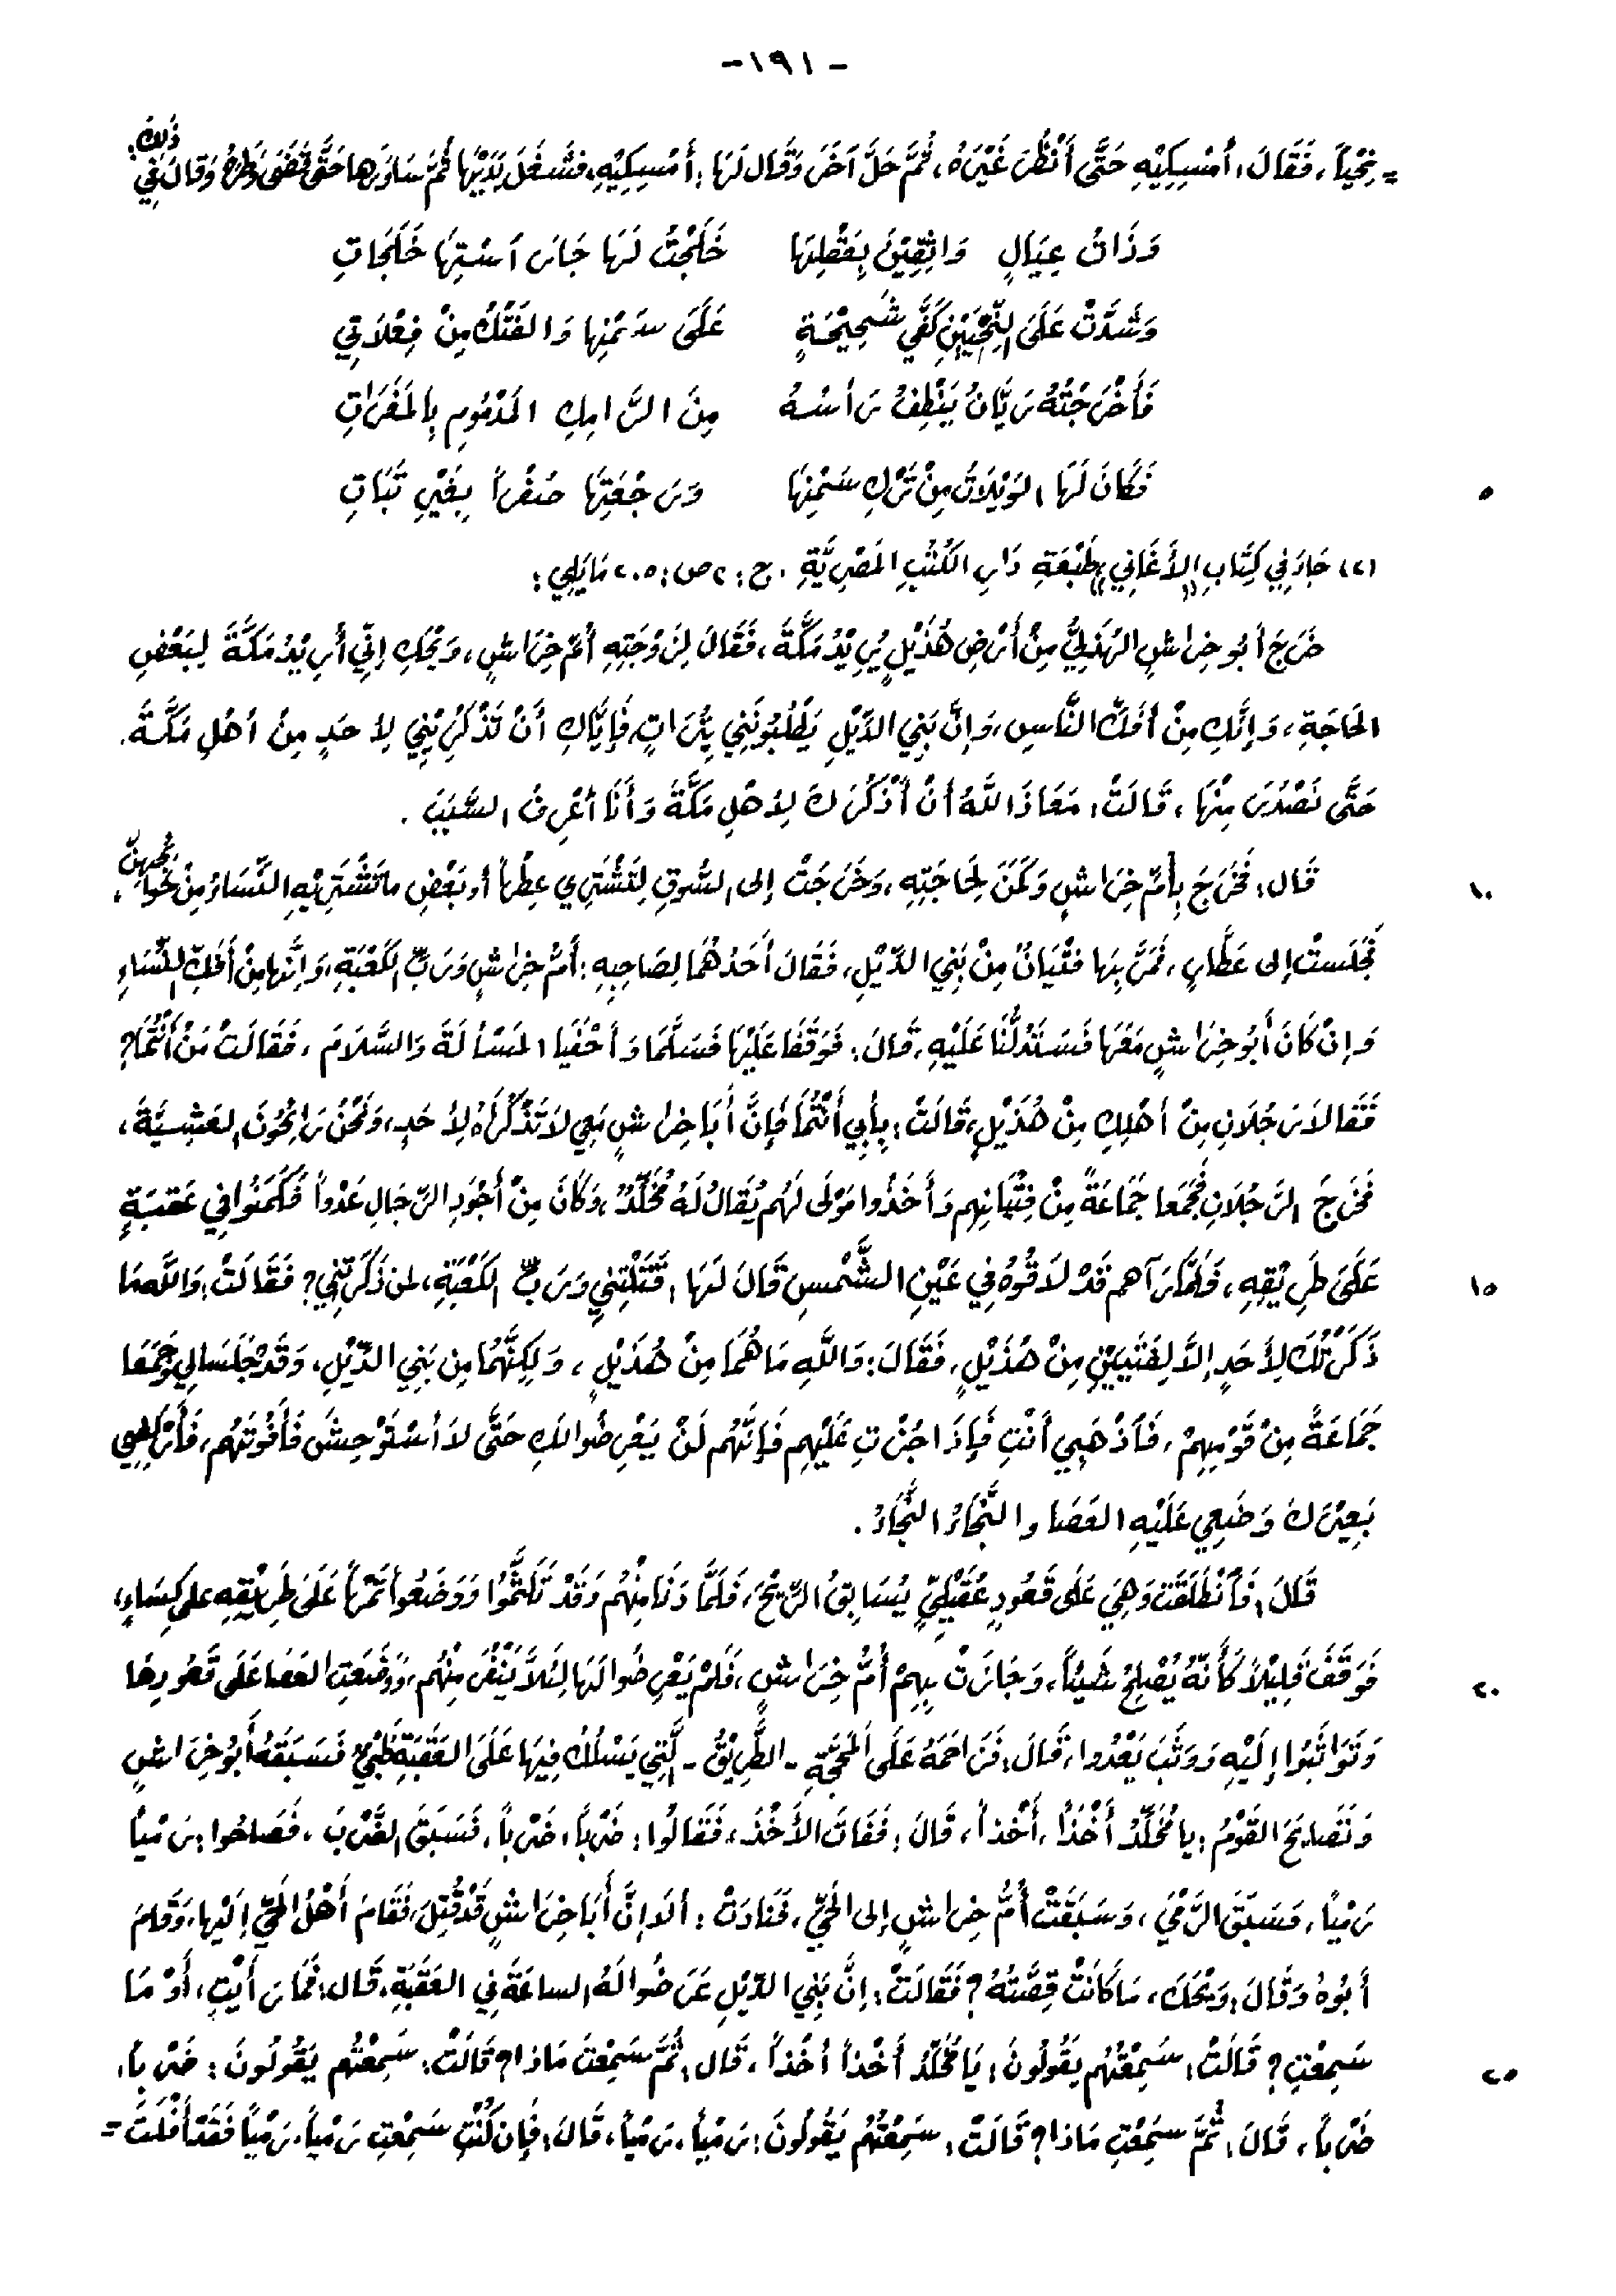 -١٩١-
= نِحْياً، فَقَالَ: أمْسِكِيْهِ حَتَّى أَنْظُرَ غَيْرَهُ، ثُمَّ حَلَّ آخَرَ وَقَالَ لَهَا: أَمْسِكِيْهِ، فَشَغَلَ يَدَيْهَا ثُمَّ سَاوَرَها حَتَّى قَضَى وَطَرَهُ وَقالَ فِي ذَلِكَ:
وَذَاتُ عِيَالٍ وَاثِقِيْنَ بِعَقْلِهَا خَلَجْتُ لَهَا جَارَ آسْتِهَا خَلَجَاتِ
وَشَدَّتْ عَلَى النِّحْيَيْنِ كَفَّي شَحِيْحَةٍ عَلَى سَمْنِها وَالفَتْكُ مِنْ فِعْلَاتِي
فَأَخْرَجْتُهُ رَيَّانُ يَنْطِفُ رَأسُهُ مِنَ الرَّامِكِ المَدْمُومِ بِالمَفَرَاتِ
فَكَانَ لَهَا الوَيْلَاتُ مِنْ تَرْكِ سَمْنِهَا وَرَجْعَتِهَا صَفْراً بِغَيْرِ تَبَاتِ
٥
(٢) جَاءَ فِي كِتَابِ «الأَغَانِي» طَبْعَةِ دَارِ الكُتُبِ المَصْرِيَّةِ. ج: ٢١ ص: ٢٠٥ مَا يَلِي:
خَرَجَ أبُو خِرَاشِ الهُذَلِيُّ مِنْ أَرْضِ هُذَيْلٍ يُرِيْدُ مَكَّةَ، فَقَالَ لِزَوْجَتِهِ أُمِّ خِرَاشٍ، وَيْحَكِ إنِّي أُرِيْدُ مَكَّةَ لِبَعْضِ
الحَاجَةِ، وَإنَّكِ مِنْ أَفَكِّ النَّاسِ، وَإنَّ بَنِي الدِّيْلِ يَطْلُبُونَنِي بِتِرَاتٍ، فَإيَّاكِ أنْ تَذْكُرِيْنِي لِأحَدٍ مِنْ أهْلِ مَكَّةَ.
حَتَّى نَصْدُرَ مِنْهَا، قَالَتْ: مَعَاذَ اللَّهُ أنْ أَذْكُرَكَ لِأهْلِ مَكَّةَ وَأنَا أعْرِفُ السَّبَبَ.
قَال: فَخَرَجَ بِأُمِّ خِرَاشٍ وَكَمَنَ لِحَاجَتِهِ، وَخَرَجَتْ إلى السُّوقِ لِتَشْتَرِي عِطْراً أو بَعْضِ ما تَشْتَرِيْهِ النِّسَاءُ مِنْ حَوَائِجِهِنَّ،
١٠
فَجَلَسَتْ إلى عَطَّارٍ، فَمَرَّ بِهَا فَتْيَانُ مِنْ بَنِي الدِّيْلِ، فَقَالَ أحَدُهُمَا لِصَاحِبِهِ: أُمُّ خِرَاشٍ وَرَبِّ الكَعْبَةِ، وَإنَّها مِنْ أَفَكِّ النِّسَاءِ
وَإنْ كَانَ أَبُو خِرَاشٍ مَعَهَا فَسَتَدُلُّنَا عَلَيْهِ، قَالَ: فَوَقَفَا عَلَيْهَا فَسَلَّمَا وَأحْفَيَا المَسْألَةَ وَالسَّلَامَ، فَقَالَتْ مَنْ أَنْتُمَا؟
فَقَالا رَجُلَانِ مِنْ أهْلِكِ مِنْ هُذَيْلٍ، قَالَتْ: بِأَبِي أَنْتُمَا فَإنَّ أَبَا خِرَاشٍ مَعِي لاَتَذْكُرَاهُ لِأحَدٍ، وَنَحْنُ رَائِحُونَ العَشِيَّةَ،
فَخَرَجَ الرَّجُلَانِ فَجَمَعا جَمَاعَةً مِنْ فِتْيَانِهِم وَأَخَذُوا مَوْلَى لَهُم يُقَالُ لَهُ مُخَلَّدُ، وَكَانَ مِنْ أَجْوَدِ الرِّجَالِ عَدْواً فَكَمَنُوا فِي عَقَبَةٍ
عَلَى طَرِيْقِهِ، فَلَمَّا رَآهم قَدْ لَاقُوهُ فِي عَيْنِ الشَّمْسِ قَالَ لَهَا: قَتَلْتِنِي وَرَبِّ الكَعْبَةِ، لمن ذَكَرْتِنِي؟ فَقَالَتْ: وَاللَّهِ مَا
١٥
ذَكَرْتُكَ لِأَحَدٍ إلاَّ لِفَتَيَيْنِ مِنْ هُذَيْلٍ، فَقَالَ: وَاللَّهِ مَا هُمَا مِنْ هُذَيْلٍ، وَلَكِنَّهُمَا مِن بَنِي الدِّيْلِ، وَقَدْ جَلَسَا لِي وَجَمَعَا
جَمَاعَةً مِنْ قَوْمِهِمْ، فَآذْهَبِي أَنْتِ فَإذَا جُزْتِ عَلَيْهِم فَإنَّهُم لَنْ يَعْرِضُوا لَكِ حَتَّى لاَ أسْتَوْحِشَ فَأَفُوتَهُم، فَأَرْكِضِي
بَعِيْرَكَ وَضَعِي عَلَيْهِ العَصَا والنَّجَاءَ النَّجَاءَ.
قَالَ: فَآنْطَلَقَتْ وَهِيَ عَلَى قَعُودٍ عُقَيْلِيٍّ يُسَابِقُ الرِّيْحَ، فَلَمَّا دَنَا مِنْهُم وَقَدْ تَلَثَّمُوا وَوَضَعُوا تَمْراً عَلَى طَرِيْقِهِ على كِسَاءٍ،
فَوَقَفَ قَلِيْلاً كَأنَّهُ يُصْلِحُ شَيْئاً، وَجَازَتْ بِهِمْ أُمُّ خِرَاشٍ، فَلَمْ يَعْرِضُوا لَهَا لِئَلاَّ يَنْفُرَ مِنْهُم، وَوَضَعَتِ العَصَا عَلَى قَعُودِهَا
٢٠
وَتَوَاثَبُوا إلَيْهِ وَوَثَبَ يَعْدُوا، قَالَ: فَزَاحَمَهُ عَلَى المَحَجَّةِ - الطَّرِيْقُ - الَّتِي يَسْلُكُ فِيهَا عَلَى العَقَبَةِ ظَبْيٌ فَسَبَقَهُ أَبُو خِرَاشٍ
وَتَصَايَحَ القَوْمُ: يا مُخَلَّدُ أَخْذاً، أَخْذاً، قَالَ: فَفَاتَ الأَخْذَ، فَقَالُوا: ضَرْباً، ضَرْباً، فَسَبَقَ الضَّرْبَ، فَصَاحُوا: رَمْياً
رَمْياً، فَسَبَقَ الرَّمْيَ، وَسَبَقَتْ أُمُّ خِرَاشٍ إلى الحَيِّ، فَنَادَتْ: ألَا إنَّ أَبَا خِرَاشٍ قَدْ قُتِلَ، فَقَامَ أَهْلُ الحَيِّ إلَيْها، وَقَامَ
أَبُوهُ وَقَالَ: وَيْحَكِ، مَا كَانَتْ قِصَّتُهُ؟ فَقَالَتْ: إنَّ بَنِي الدِّيْلِ عَرَضُوا لَهُ الساعَةَ فِي العَقَبَةِ، قَال: فَمَا رَأَيْتِ، أَوْ مَا
سَمِعْتِ؟ قَالَتْ: سَمِعْتُهُم يَقُولُونَ: يَا مُخَلَّدُ أَخْذاً أخْذاً، قَال: ثُمَّ سَمِعْتِ مَاذا؟ قَالَتْ: سَمِعْتُهم يَقُولُونَ: ضَرْباً،
٢٥
ضَرْباً، قَالَ: ثُمَّ سَمِعْتِ مَاذا؟ قَالَتْ: سَمِعْتُهُم يَقُولُونَ: رَمْياً، رَمْياً، قَالَ: فَإن كُنْتِ سَمِعْتِ رَمْياً، رَمْياً فَقَدْ أَفْلَتَ =